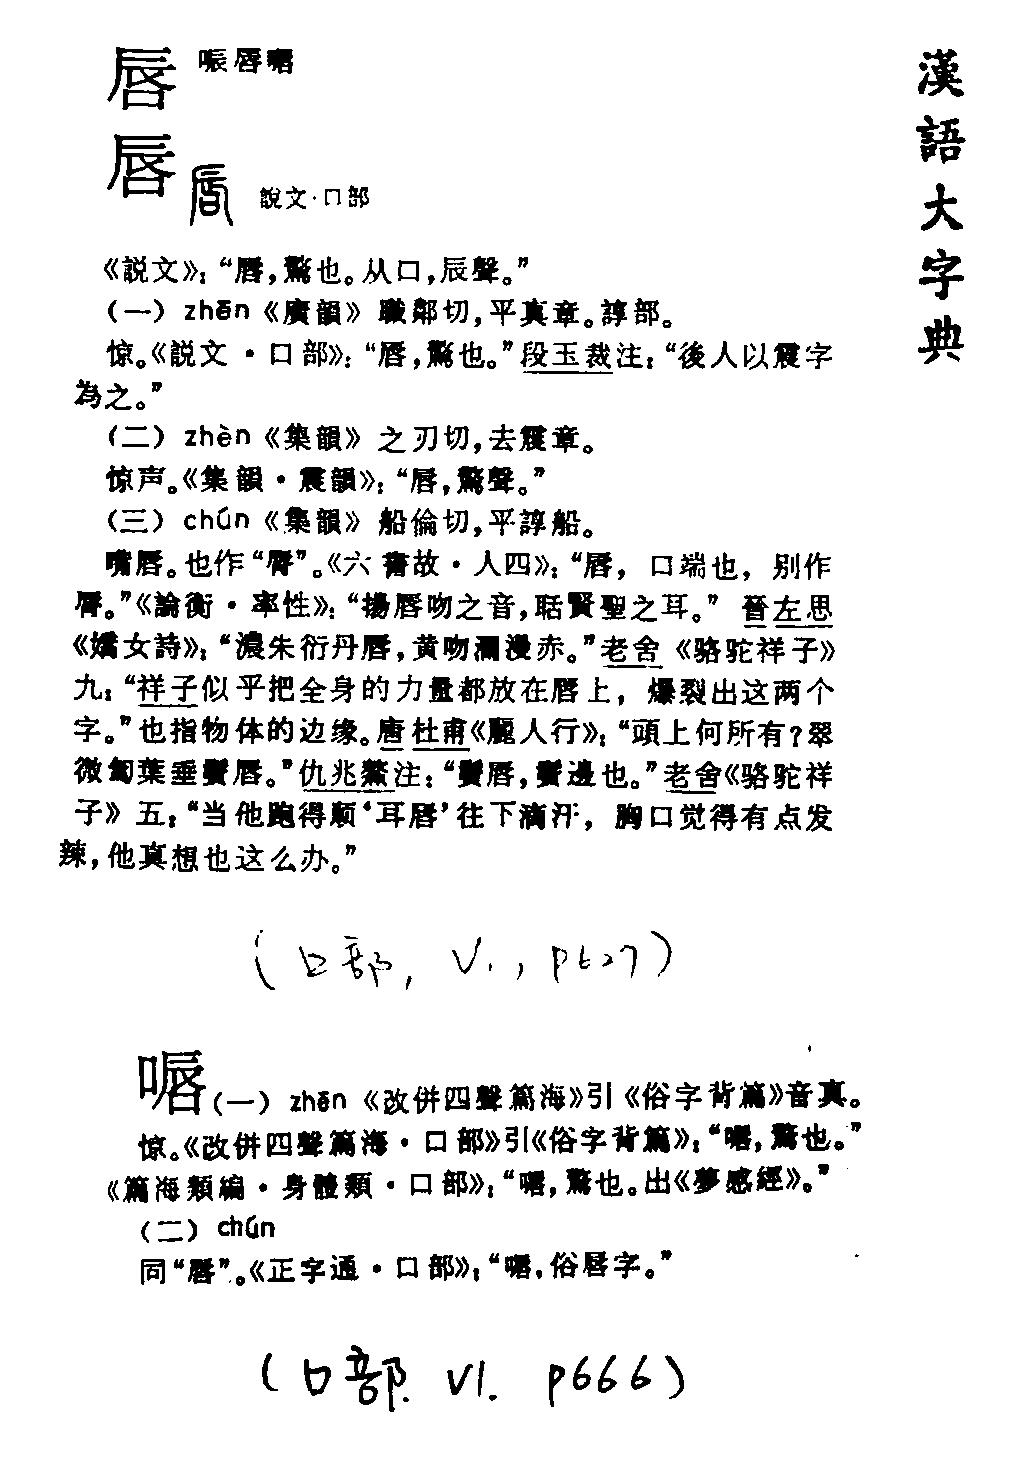 漢語大字典
唇 㖘唇𠾑
唇 說文·口部
《説文》：“唇，驚也。从口，辰聲。”
（一）zhēn《廣韻》職鄰切，平真章。諄部。
惊。《説文·口部》：“唇，驚也。”段玉裁注：“後人以震字
為之。”
（二）zhèn《集韻》之刃切，去震章。
惊声。《集韻·震韻》：“唇，驚聲。”
（三）chún《集韻》船倫切，平諄船。
嘴唇。也作“脣”。《六書故·人四》：“唇，口端也，别作
脣。”《論衡·率性》：“揚唇吻之音，聒賢聖之耳。”晉左思
《嬌女詩》：“濃朱衍丹唇，黄吻瀾漫赤。”老舍《骆驼祥子》
九：“祥子似乎把全身的力量都放在唇上，爆裂出这两个
字。”也指物体的边缘。唐杜甫《麗人行》：“頭上何所有？翠
微㔩葉垂鬢唇。”仇兆鰲注：“鬢唇，鬢邊也。”老舍《骆驼祥
子》五：“当他跑得顺‘耳唇’往下滴汗，胸口觉得有点发
辣，他真想也这么办。”
（口部，V1，p627）
𠾑（一）zhēn《改併四聲篇海》引《俗字背篇》音真。
惊。《改併四聲篇海·口部》引《俗字背篇》：“𠾑，驚也。”
《篇海類編·身體類·口部》：“𠾑，驚也。出《夢感經》。”
（二）chún
同“唇”。《正字通·口部》：“𠾑，俗唇字。”
（口部. V1. p666）